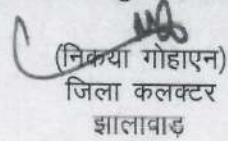 (निकया गोहाएन)
जिला कलक्टर
झालावाड़